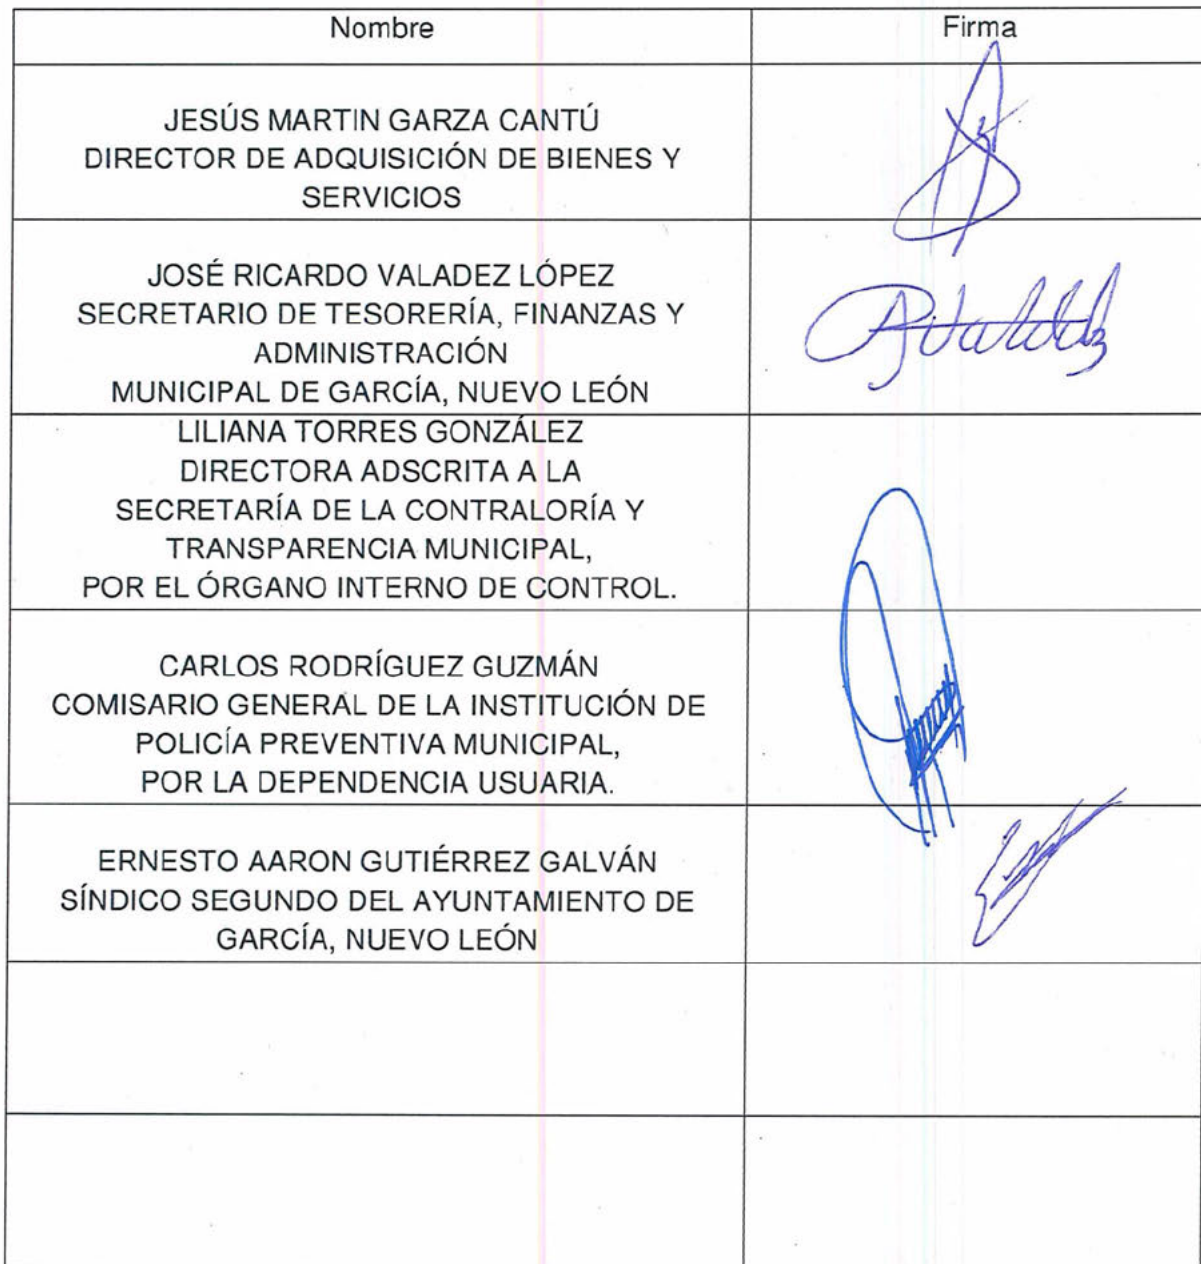 Nombre
Firma
JESÚS MARTIN GARZA CANTÚ
DIRECTOR DE ADQUISICIÓN DE BIENES Y
SERVICIOS
JOSÉ RICARDO VALADEZ LÓPEZ
SECRETARIO DE TESORERÍA, FINANZAS Y
ADMINISTRACIÓN
MUNICIPAL DE GARCÍA, NUEVO LEÓN
LILIANA TORRES GONZÁLEZ
DIRECTORA ADSCRITA A LA
SECRETARÍA DE LA CONTRALORÍA Y
TRANSPARENCIA MUNICIPAL,
POR EL ÓRGANO INTERNO DE CONTROL.
CARLOS RODRÍGUEZ GUZMÁN
COMISARIO GENERAL DE LA INSTITUCIÓN DE
POLICÍA PREVENTIVA MUNICIPAL,
POR LA DEPENDENCIA USUARIA.
ERNESTO AARON GUTIÉRREZ GALVÁN
SÍNDICO SEGUNDO DEL AYUNTAMIENTO DE
GARCÍA, NUEVO LEÓN